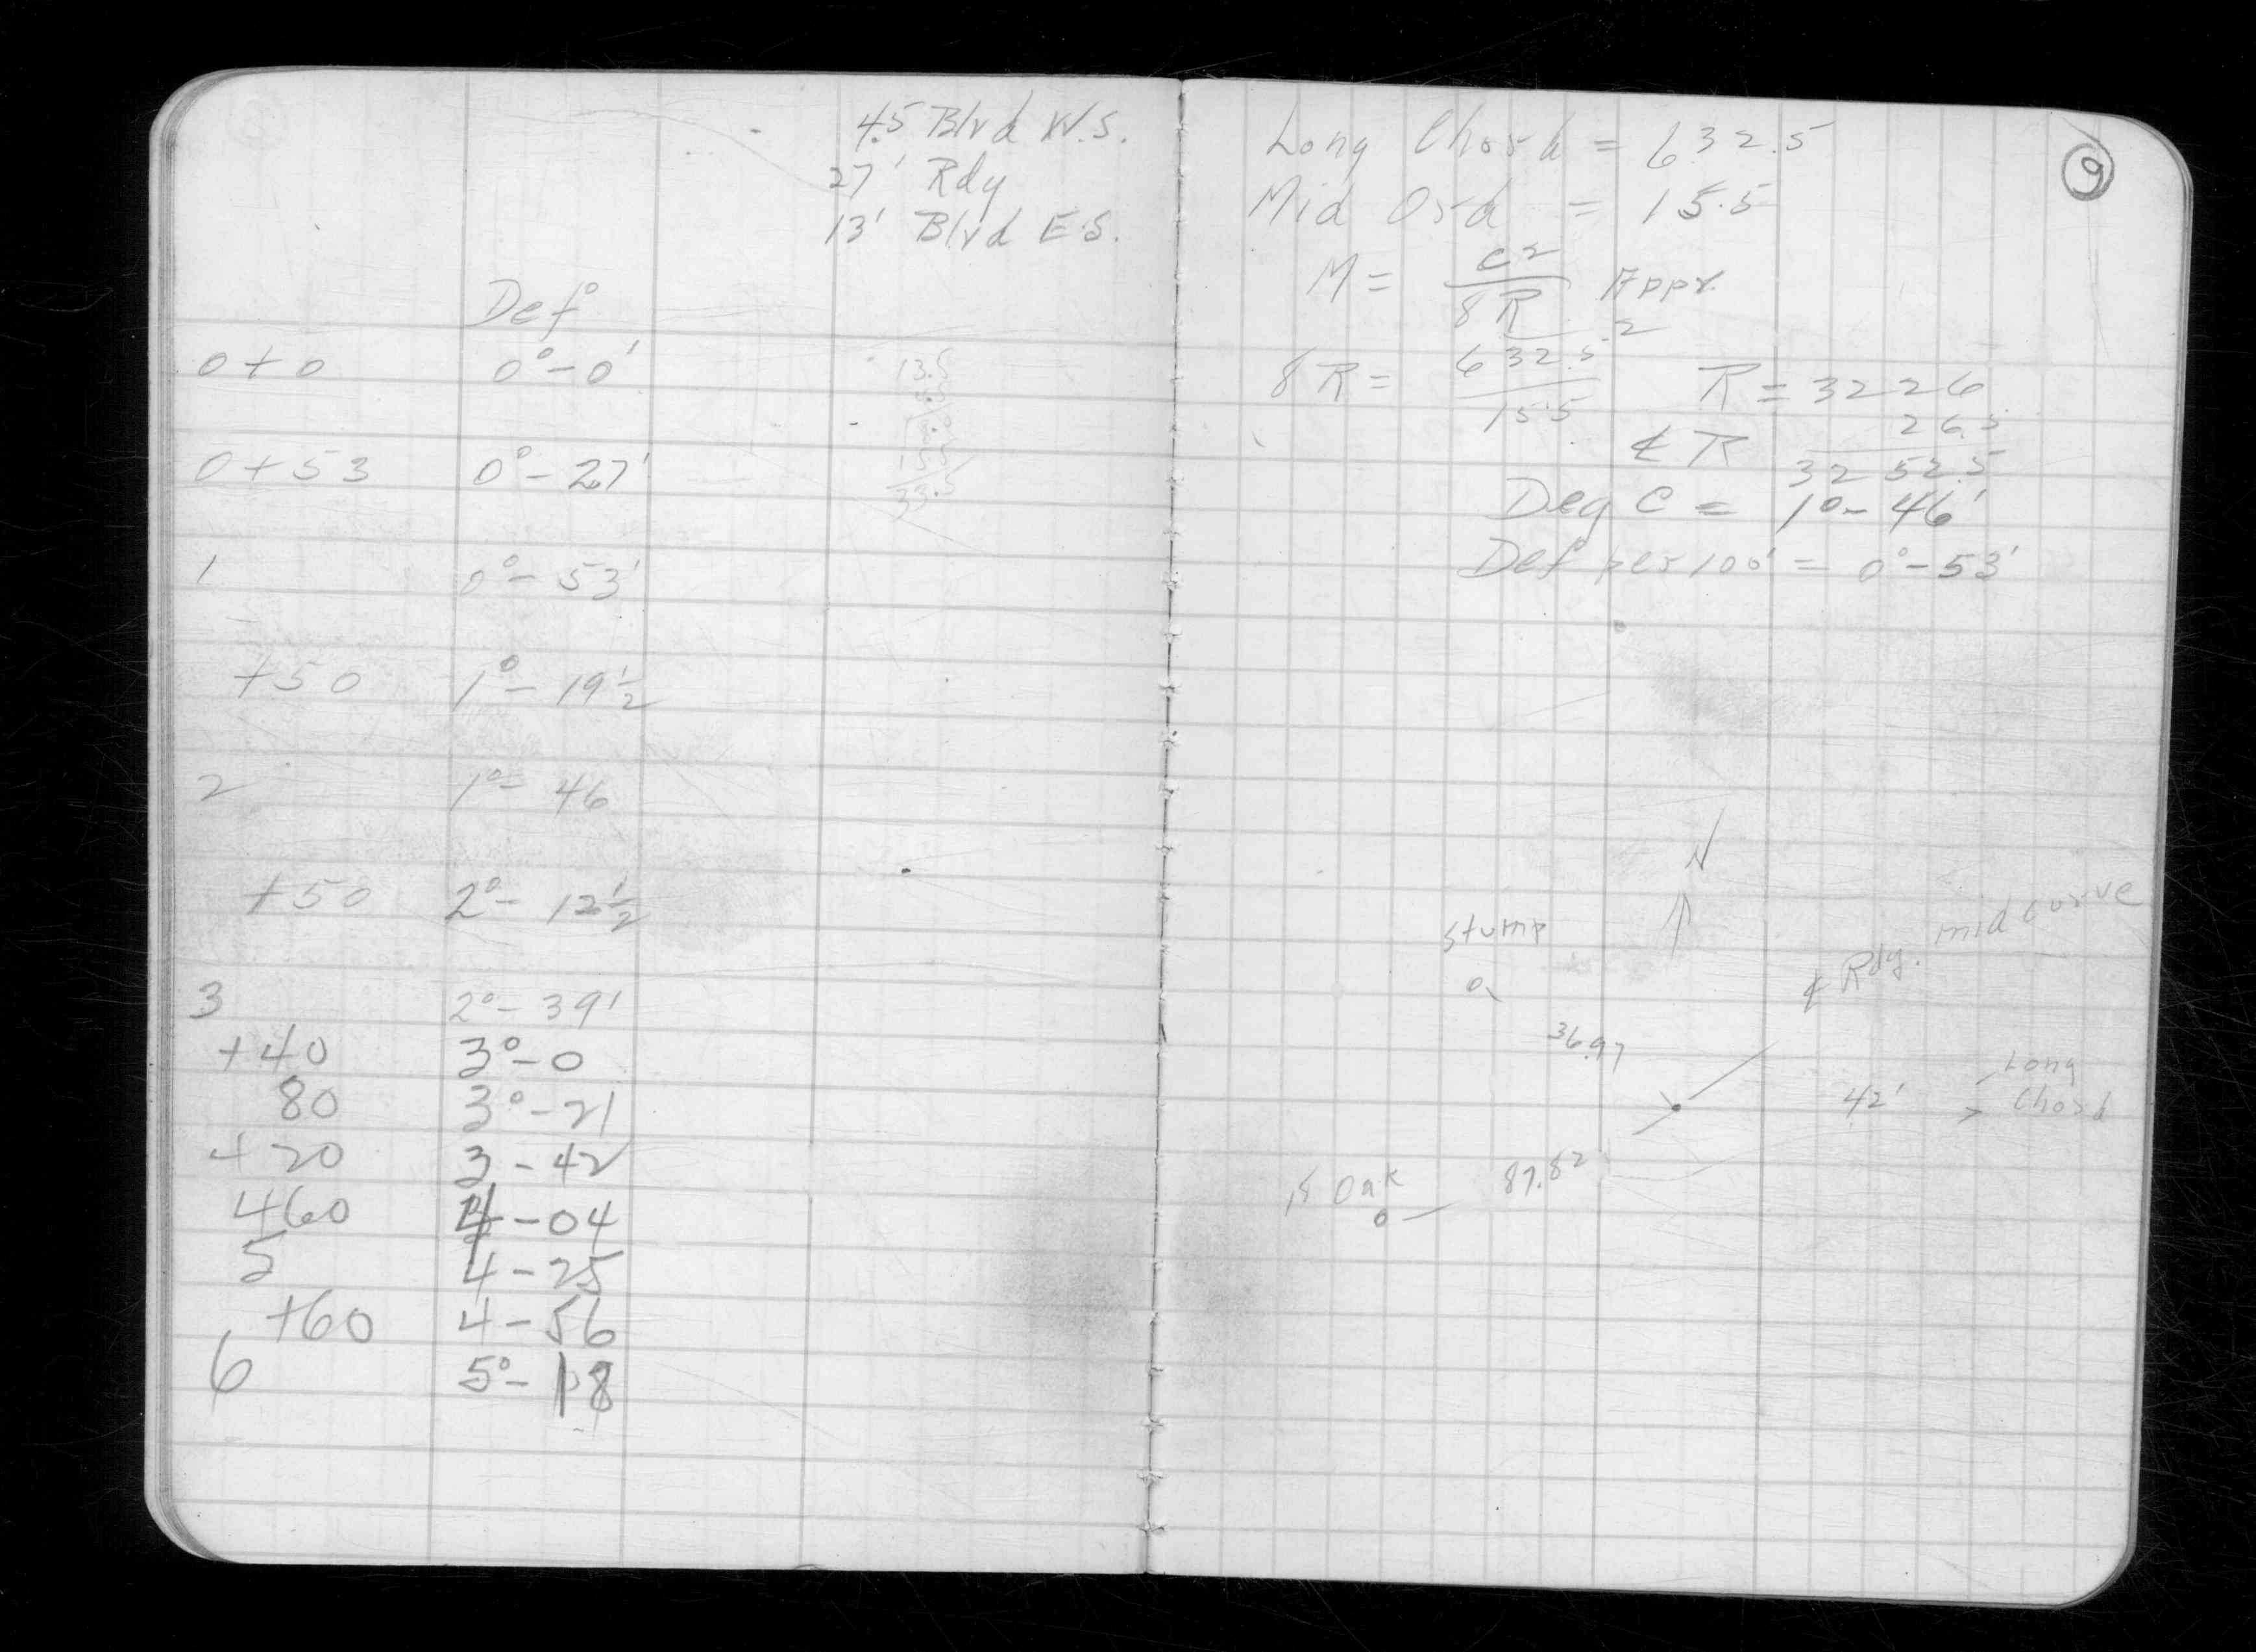 4.5 Blvd W.S.
27' Rdy
13' Blvd E.S.
Def
0+0 0°-0'
0+53 0°-27'
1 0°-53'
+50 1°-19 1/2'
2 1°-46
+50 2°-12 1/2'
3 2°-39'
+40 3°-0
80 3°-21
+20 3-42
460 4-04
5 4-25
+60 4-56
6 5°-18
13.5
33.5
9
Long Chord = 632.5
Mid Ord = 15.5
M = C²/8R Appr.
8R = 632.5²/15.5 R = 3226
26.5
₵ R 3252.5
Deg C = 1°-46'
Def per 100' = 0°-53'
N
Stump
₵ Rdy. mid curve
36.97
42' Long
Chord
Oak 87.82